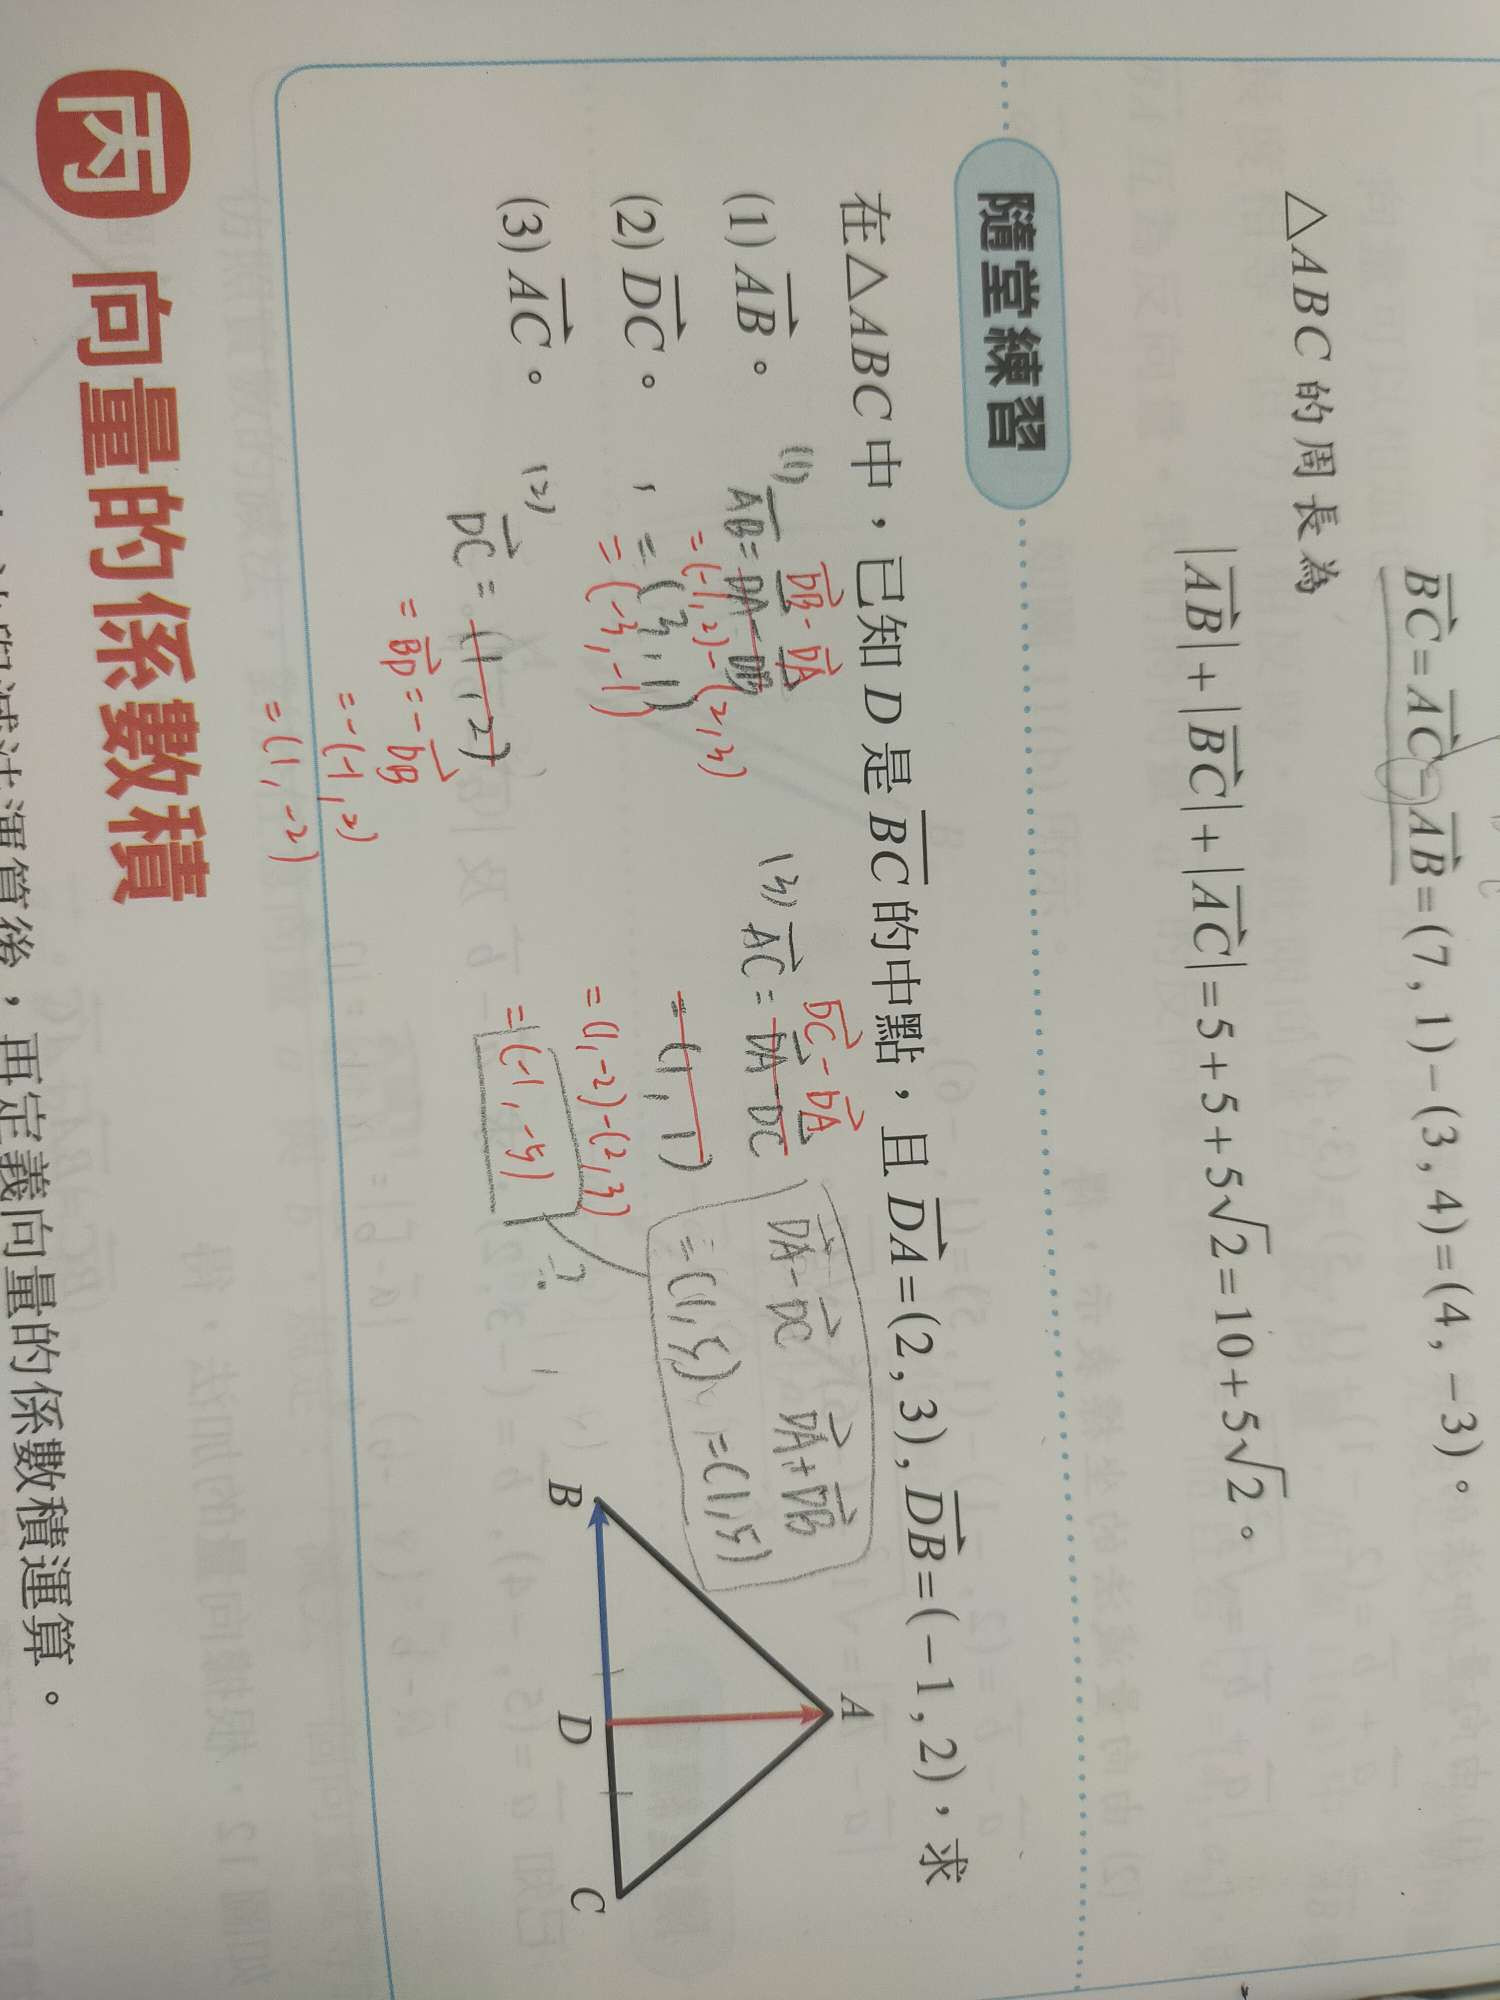 BC=AC-AB=(7,1)-(3,4)=(4,-3)。
△ABC的周長為
|AB|+|BC|+|AC|=5+5+5√2=10+5√2。
隨堂練習
在△ABC中，已知D是BC的中點，且DA=(2,3),DB=(-1,2)，求
(1) AB。
(2) DC。
(3) AC。
(1)
DB-DA
AB=DA-DB
=(-1,2)-(2,3)
=(3,1)
=(-3,-1)
(2)
DC=(1,2)
=BD=-DB
=-(-1,2)
=(1,-2)
(3)
DC-DA
AC=DA-DC
=(1,1)
=(1,-2)-(2,3)
=(-1,-5)
?
DA-DC
=(1,5)
DA+DB
=(1,5)
A
B
D
C
丙 向量的係數積
後，再定義向量的係數積運算。